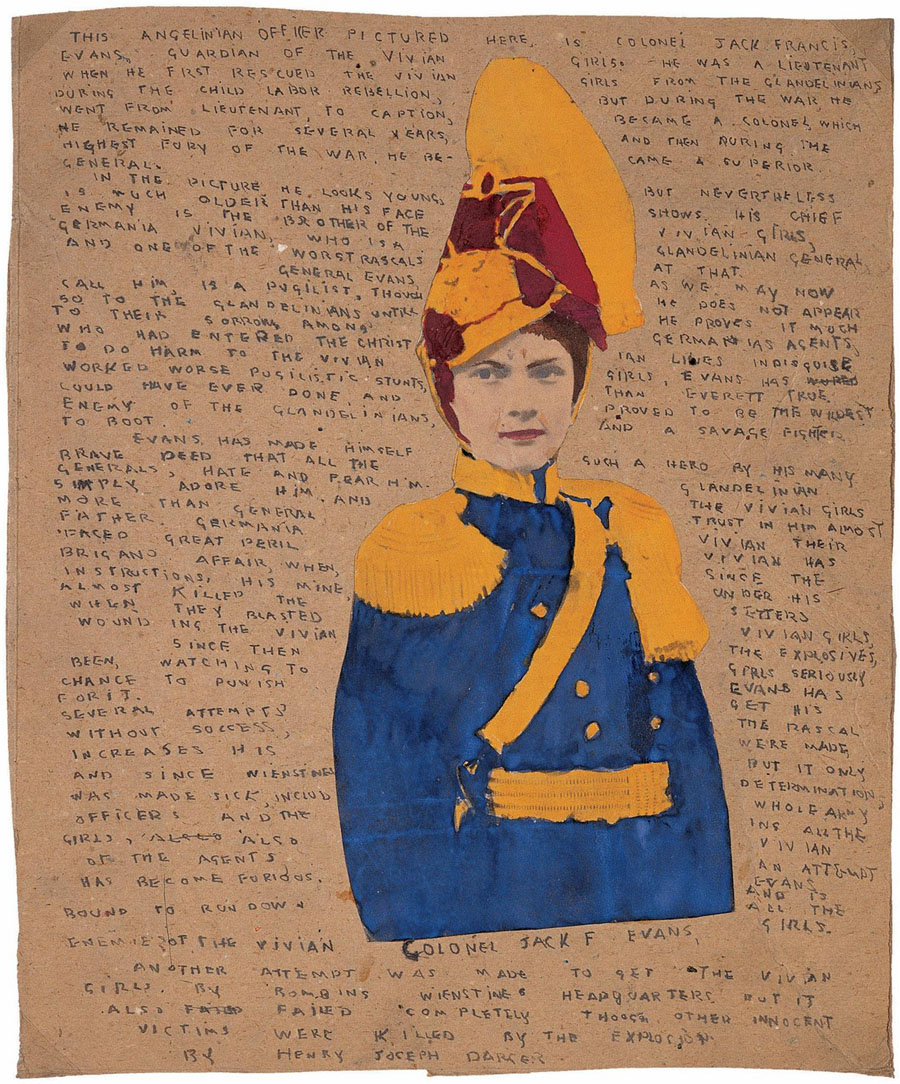 THIS ANGELINIAN OFFICER PICTURED HERE, IS COLONEL JACK FRANCIS,
EVANS, GUARDIAN OF THE VIVIAN GIRLS. HE WAS A LIEUTENANT
WHEN HE FIRST RESCUED THE VIVIAN GIRLS FROM THE GLANDELINIANS
DURING THE CHILD LABOR REBELLION, BUT DURING THE WAR HE
WENT FROM LIEUTENANT, TO CAPTION, BECAME A COLONEL, WHICH
HE REMAINED FOR SEVERAL YEARS, AND THEN DURING THE
HIGHEST FURY OF THE WAR, HE BE- CAME A SUPERIOR
GENERAL.
IN THE PICTURE HE LOOKS YOUNG, BUT NEVERTHELESS
IS MUCH OLDER THAN HIS FACE SHOWS. HIS CHIEF
ENEMY IS THE BROTHER OF THE VIVIAN GIRLS,
GERMANIA VIVIAN, WHO IS A GLANDELINIAN GENERAL
AND ONE OF THE WORST RASCALS AT THAT.
GENERAL EVANS, AS WE MAY NOW
CALL HIM, IS A PUGILIST, THOUGH HE DOES NOT APPEAR
SO TO THE GLANDELINIANS UNTILL HE PROVES IT MUCH
TO THEIR SORROW, AMONG GERMANIAS AGENTS,
WHO HAD ENTERED THE CHRIST IAN LINES IN DISGUISE
TO DO HARM TO THE VIVIAN GIRLS, EVANS HAS
WORKED WORSE PUGILISTIC STUNTS, THAN EVERETT TRUE
COULD HAVE EVER DONE, AND PROVED TO BE THE WILDEST
ENEMY OF THE GLANDELINIANS, AND A SAVAGE FIGHTER
TO BOOT.
EVANS HAS MADE HIMSELF SUCH A HERO BY HIS MANY
BRAVE DEED THAT ALL THE GLANDELINIAN
GENERALS, HATE AND FEAR HIM. THE VIVIAN GIRLS
SIMPLY ADORE HIM AND TRUST IN HIM ALMOST
MORE THAN GENERAL VIVIAN THEIR
FATHER. GERMANIA VIVIAN HAS
FACED GREAT PERIL SINCE THE
BRIGAND AFFAIR, WHEN, UNDER HIS
INSTRUCTIONS, HIS MINE SETTERS
ALMOST KILLED THE VIVIAN GIRLS,
WHEN THEY BLASTED THE EXPLOSIVES,
WOUNDING THE VIVIAN GIRLS SERIOUSLY
SINCE THEN EVANS HAS
BEEN, WATCHING TO GET HIS
CHANCE TO PUNISH THE RASCAL
FOR IT.
SEVERAL ATTEMPTS WERE MADE
WITHOUT SUCCESS, BUT IT ONLY
INCREASES HIS DETERMINATION,
AND SINCE WIENSTINES WHOLE ARMY
WAS MADE SICK, INCLUD ING ALL THE
OFFICERS AND THE VIVIAN
GIRLS, ALSO ALSO AN ATTEMPT
OF THE AGENTS EVANS
HAS BECOME FURIOUS. AND IS
BOUND TO RUN DOWN ALL THE
ENEMIE OF THE VIVIAN GIRLS.
COLONEL JACK F EVANS,
ANOTHER ATTEMPT WAS MADE TO GET THE VIVIAN
GIRLS BY BOMBING WIENSTINES HEADQUARTERS BUT IT
ALSO FAILED COMPLETELY THOUGH OTHER INNOCENT
VICTIMS WERE KILLED BY THE EXPLOSION
BY HENRY JOSEPH DARGER